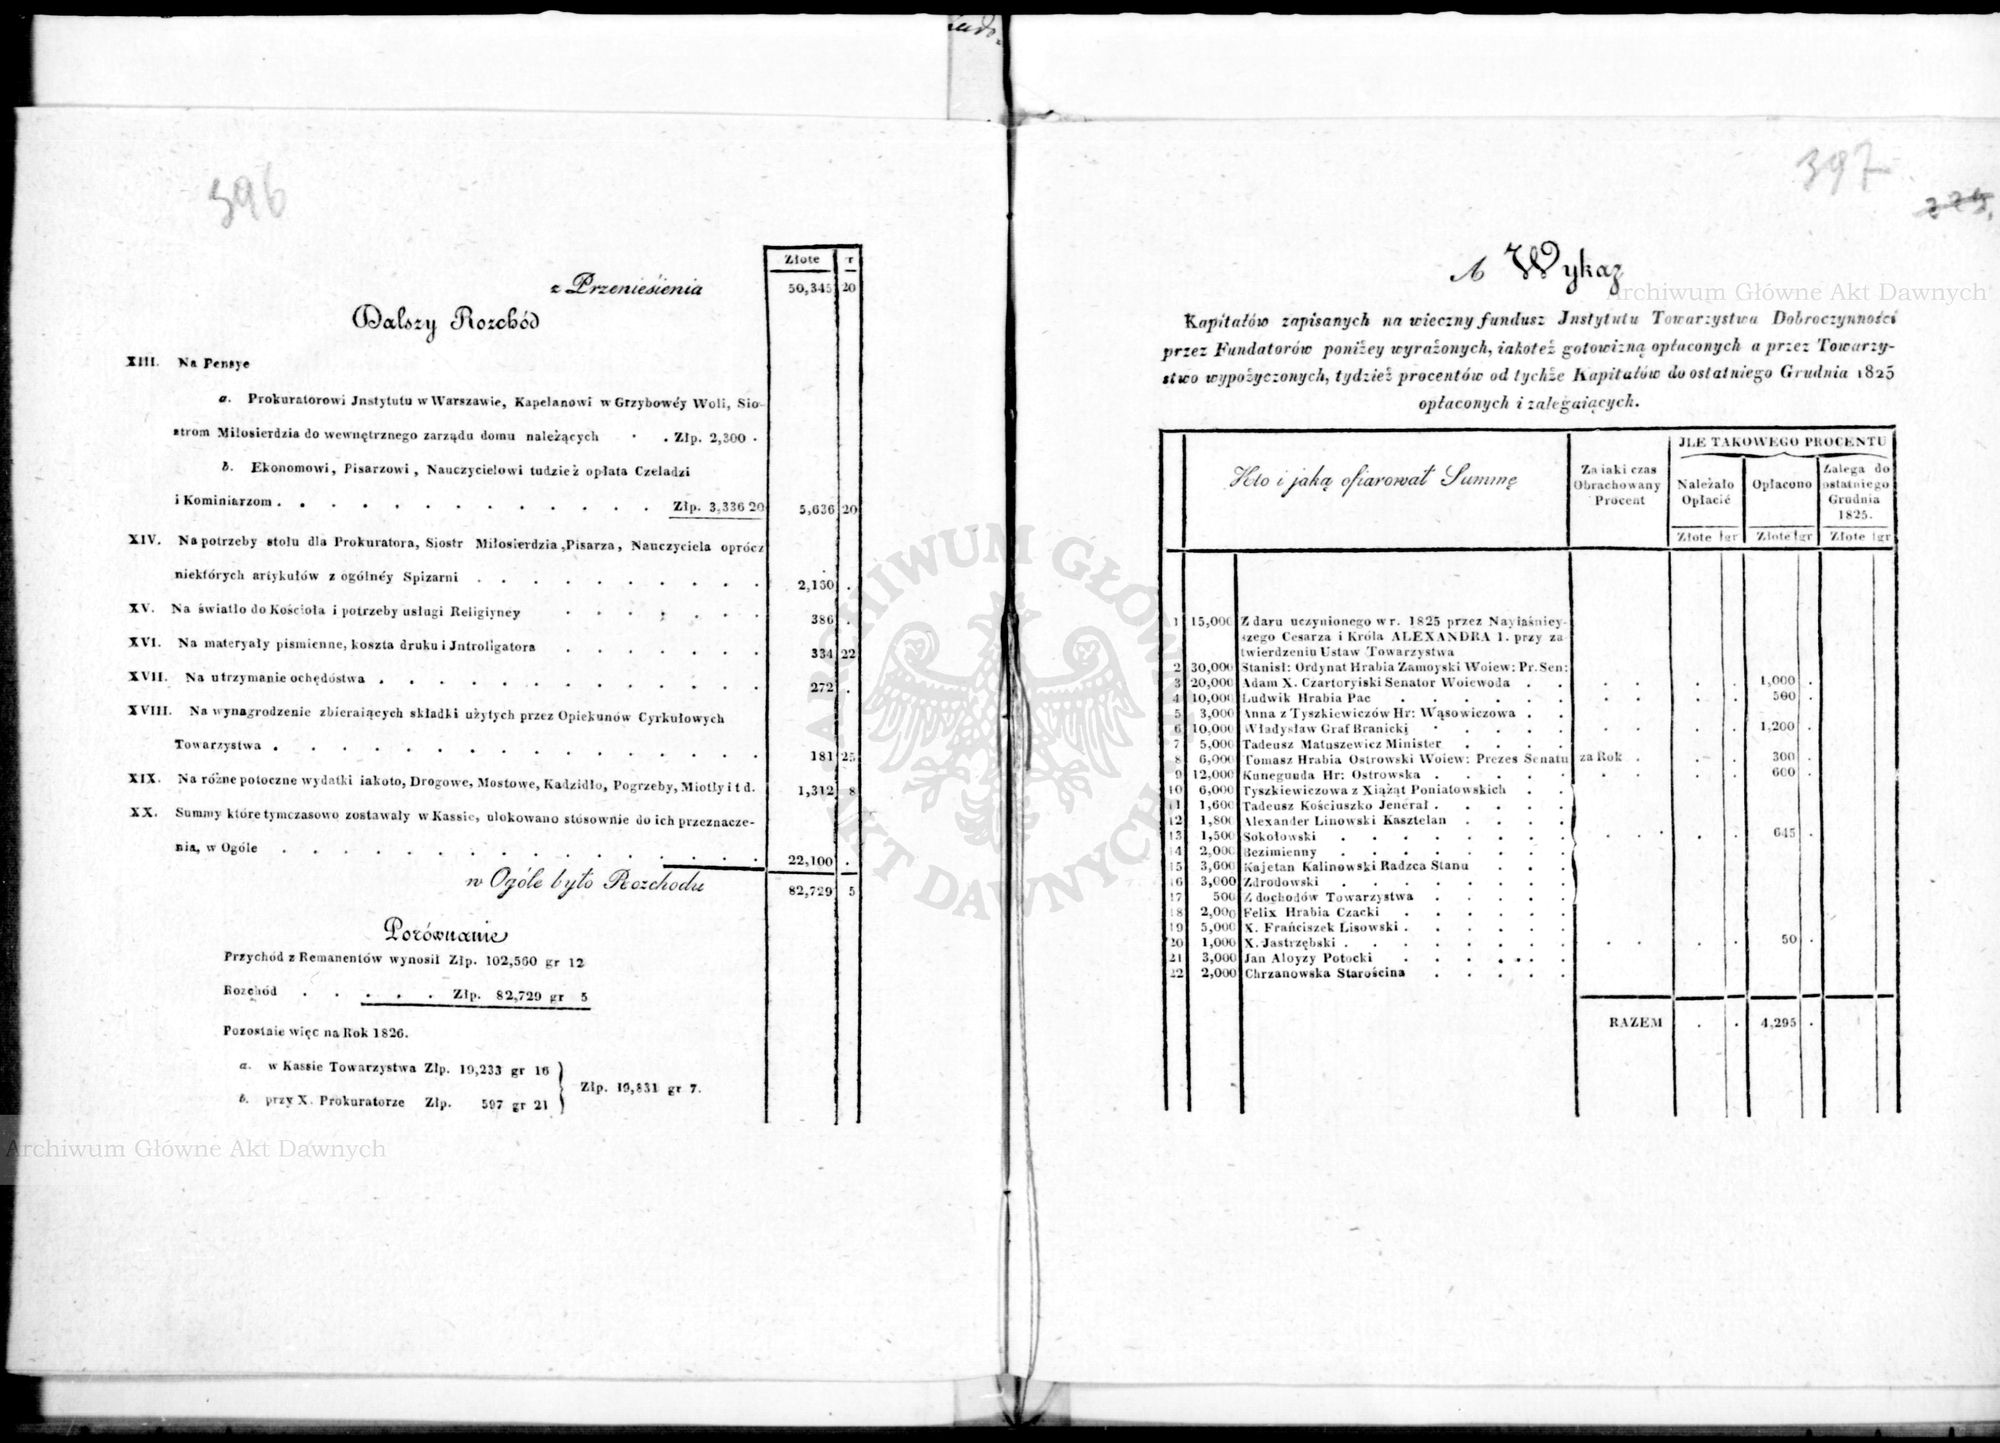 396
Złote
z Przeniesienia 50,345 20
Dalszy Rozchód
XIII. Na Pensye
a. Prokuratorowi Jnstytutu w Warszawie, Kapelanowi w Grzybowéy Woli, Sio-
strom Miłosierdzia do wewnętrznego zarządu domu należących . . Złp. 2,300 .
b. Ekonomowi, Pisarzowi, Nauczycielowi tudzież opłata Czeladzi
i Kominiarzom . . . . . . . . . . . . Złp. 3,336 20 5,636 20
XIV. Na potrzeby stołu dla Prokuratora, Siostr Miłosierdzia, Pisarza, Nauczyciela oprócz
niektórych artykułów z ogólnéy Spizarni . . . . . . . . 2,130 .
XV. Na światło do Kościoła i potrzeby usługi Religiyney . . . . . . 386 .
XVI. Na materyały piśmienne, koszta druku i Jntroligatora . . . . . . 334 22
XVII. Na utrzymanie ochędóstwa . . . . . . . . . . . 272 .
XVIII. Na wynagrodzenie zbieraiących składki użytych przez Opiekunów Cyrkułowych
Towarzystwa . . . . . . . . . . . . . . 181 25
XIX. Na różne potoczne wydatki iakoto, Drogowe, Mostowe, Kadzidło, Pogrzeby, Miotły i t d. 1,312 8
XX. Summy które tymczasowo zostawały w Kassie, ulokowano stósownie do ich przeznacze-
nia, w Ogóle . . . . . . . . . . . . . . 22,100 .
w Ogóle było Rozchodu 82,729 5
Porównanie
Przychód z Remanentów wynosił Złp. 102,560 gr 12
Rozchód . . . . . Złp. 82,729 gr 5
Pozostaie więc na Rok 1826.
a. w Kassie Towarzystwa Złp. 19,233 gr 16
Złp. 19,831 gr 7.
b. przy X. Prokuratorze Złp. 597 gr 21
Archiwum Główne Akt Dawnych
ARCHIWUM GŁÓWNE AKT DAWNYCH
397
225.
A Wykaz
Archiwum Główne Akt Dawnych
Kapitałów zapisanych na wieczny fundusz Jnstytutu Towarzystwa Dobroczynności
przez Fundatorów poniżey wyrażonych, iakoteż gotowizną opłaconych a przez Towarzy-
stwo wypożyczonych, tydzież procentów od tychże Kapitałów do ostatniego Grudnia 1825
opłaconych i zalegaiących.
Kto i jaką ofiarował Summę
Za iaki czas
Obrachowany
Procent
JLE TAKOWEGO PROCENTU
Należało
Opłacić
Opłacono
Zalega do
ostatniego
Grudnia
1825.
Złote gr Złote gr Złote gr
1 15,000 Z daru uczynionego w r. 1825 przez Nayiaśniey-
szego Cesarza i Króla ALEXANDRA I. przy za-
twierdzeniu Ustaw Towarzystwa
2 30,000 Stanisł: Ordynat Hrabia Zamoyski Woiew: Pr. Sen:
3 20,000 Adam X. Czartoryiski Senator Woiewoda . . . . . . 1,000 .
4 10,000 Ludwik Hrabia Pac . . . . . . . . . . 500 .
5 3,000 Anna z Tyszkiewiczów Hr: Wąsowiczowa . .
6 10,000 Władysław Graf Branicki . . . . . 1,200 .
7 5,000 Tadeusz Matuszewicz Minister . . . .
8 6,000 Tomasz Hrabia Ostrowski Woiew: Prezes Senatu za Rok . . . 300 .
9 12,000 Kunegunda Hr: Ostrowska . . . . . . . . . 600 .
10 6,000 Tyszkiewiczowa z Xiążąt Poniatowskich . .
11 1,600 Tadeusz Kościuszko Jenerał . . . . .
12 1,800 Alexander Linowski Kasztelan . . . .
13 1,500 Sokołowski . . . . . . . . . . . . . 645 .
14 2,000 Bezimienny . . . . . . . .
15 3,600 Kajetan Kalinowski Radzca Stanu . . .
16 3,000 Zdrodowski . . . . . . . .
17 500 Z dochodów Towarzystwa . . . . .
18 2,000 Felix Hrabia Czacki . . . . . .
19 5,000 X. Frańciszek Lisowski . . . . . .
20 1,000 X. Jastrzębski . . . . . . . . . . . . 50 .
21 3,000 Jan Aloyzy Potocki . . . . . .
22 2,000 Chrzanowska Starościna . . . . .
RAZEM . . 4,295 .